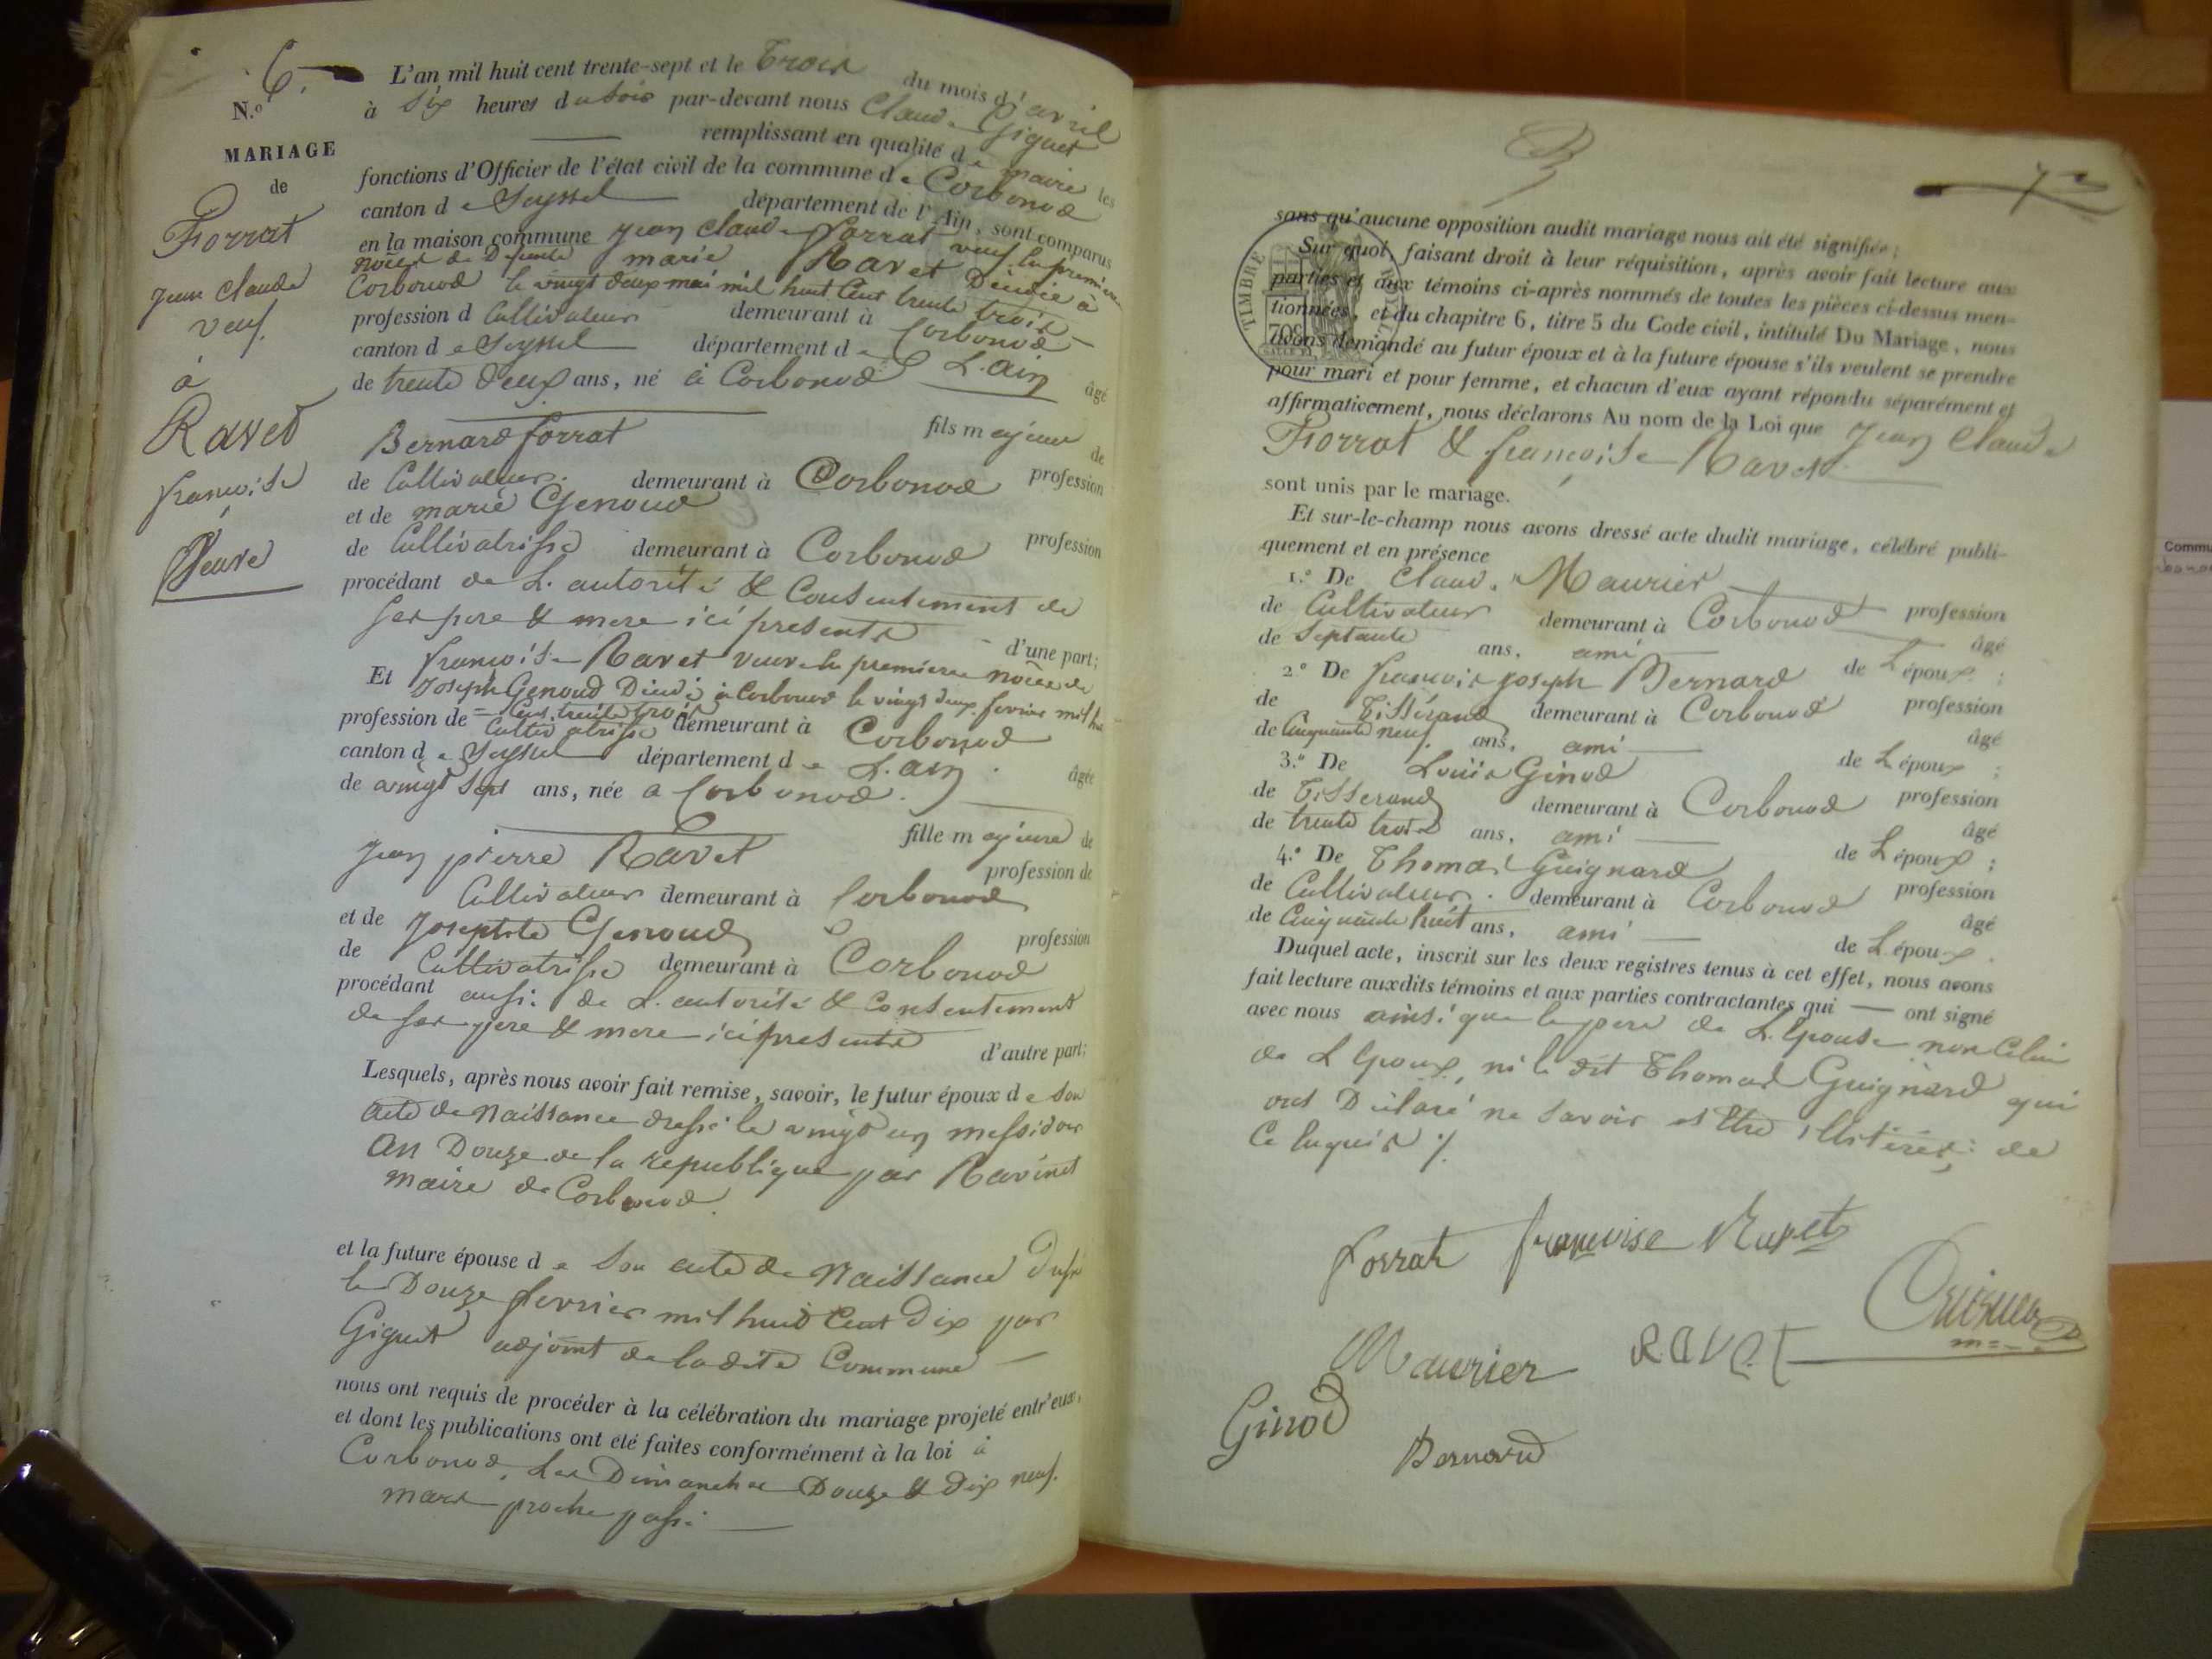 N.o 6.
MARIAGE
de
Forrat
Jean Claude
veuf.
à
Ravet
françoise
Veuve
L'an mil huit cent trente-sept et le Trois du mois d'avril
à Six heures du Soir par-devant nous Claude Giguet
remplissant en qualité de maire les
fonctions d'Officier de l'état civil de la commune de Corbonod
canton de Seyssel département de l'Ain, sont comparus
en la maison commune Jean Claude forrat veuf En premiere
noces de Defunte marie Ravet Décédée à
Corbonod le vingt deux mai mil huit Cent trente trois
profession d Cultivateur demeurant à Corbonod
canton de Seyssel département de L'ain âgé
de trente deux ans, né à Corbonod
fils majeur de
Bernard forrat profession
de Cultivateur. demeurant à Corbonod
et de marie Genoud profession
de Cultivatrisse demeurant à Corbonod
procédant de L'autorité & Consentement de
Ses pere & mere ici presents d'une part;
Et françoise Ravet veuve En premiere noces de
Joseph Genoud Décédé à Corbonod le vingt deux fevrier mil huit
Cent trente trois
profession de Cultivatrisse demeurant à Corbonod
canton de Seyssel département de L'ain. âgée
de vingt Sept ans, née a Corbonod.
fille majeure de
Jean pierre Ravet profession de
Cultivateur demeurant à Corbonod
et de Josephte Genoud profession
de Cultivatrisse demeurant à Corbonod
procédant aussi de L'autorité & Consentement
de Ses pere & mere ici presents d'autre part;
Lesquels, après nous avoir fait remise, savoir, le futur époux de Son
acte de Naissance dressé le vingt un messidor
an Douze de la republique par Ravinet
maire de Corbonod.
et la future épouse de Son acte de Naissance Dressé
le Douze fevrier mil huit Cent Dix par
Giguet adjoint de ladite Commune
nous ont requis de procéder à la célébration du mariage projeté entr'eux,
et dont les publications ont été faites conformément à la loi à
Corbonod, Les Dimanches Douze & Dix neuf.
mars proche passé
sans qu'aucune opposition audit mariage nous ait été signifiée;
Sur quoi, faisant droit à leur réquisition, après avoir fait lecture aux
parties et aux témoins ci-après nommés de toutes les pièces ci-dessus men-
tionnées, et du chapitre 6, titre 5 du Code civil, intitulé Du Mariage, nous
avons demandé au futur époux et à la future épouse s'ils veulent se prendre
pour mari et pour femme, et chacun d'eux ayant répondu séparément et
affirmativement, nous déclarons Au nom de la Loi que Jean Claude
Forrat & françoise Ravet
sont unis par le mariage.
Et sur-le-champ nous avons dressé acte dudit mariage, célébré publi-
quement et en présence
1.o De Claude Maurier profession
de Cultivateur demeurant à Corbonod âgé
de Septante ans, ami de L'époux;
2.o De françois joseph Bernard profession
de Tisserand demeurant à Corbonod âgé
de Cinquante neuf. ans, ami de L'époux;
3.o De Louis Ginod profession
de Tisserand demeurant à Corbonod âgé
de trente trois ans, ami de L'époux;
4.o De Thomas Guignard profession
de Cultivateur. demeurant à Corbonod âgé
de Cinquante huit ans, ami de L'époux.
Duquel acte, inscrit sur les deux registres tenus à cet effet, nous avons
fait lecture auxdits témoins et aux parties contractantes qui ont signé
avec nous ainsi que le pere de L'epouse non Celui
de L'epoux, ni le dit Thomas Guignard qui
ont Déclaré ne Savoir et Etre illitérés; de
Ce Enquis ./.
TIMBRE ROYAL
forrat françoise Ravet
Maurier RAVet
Ginod
Bernard